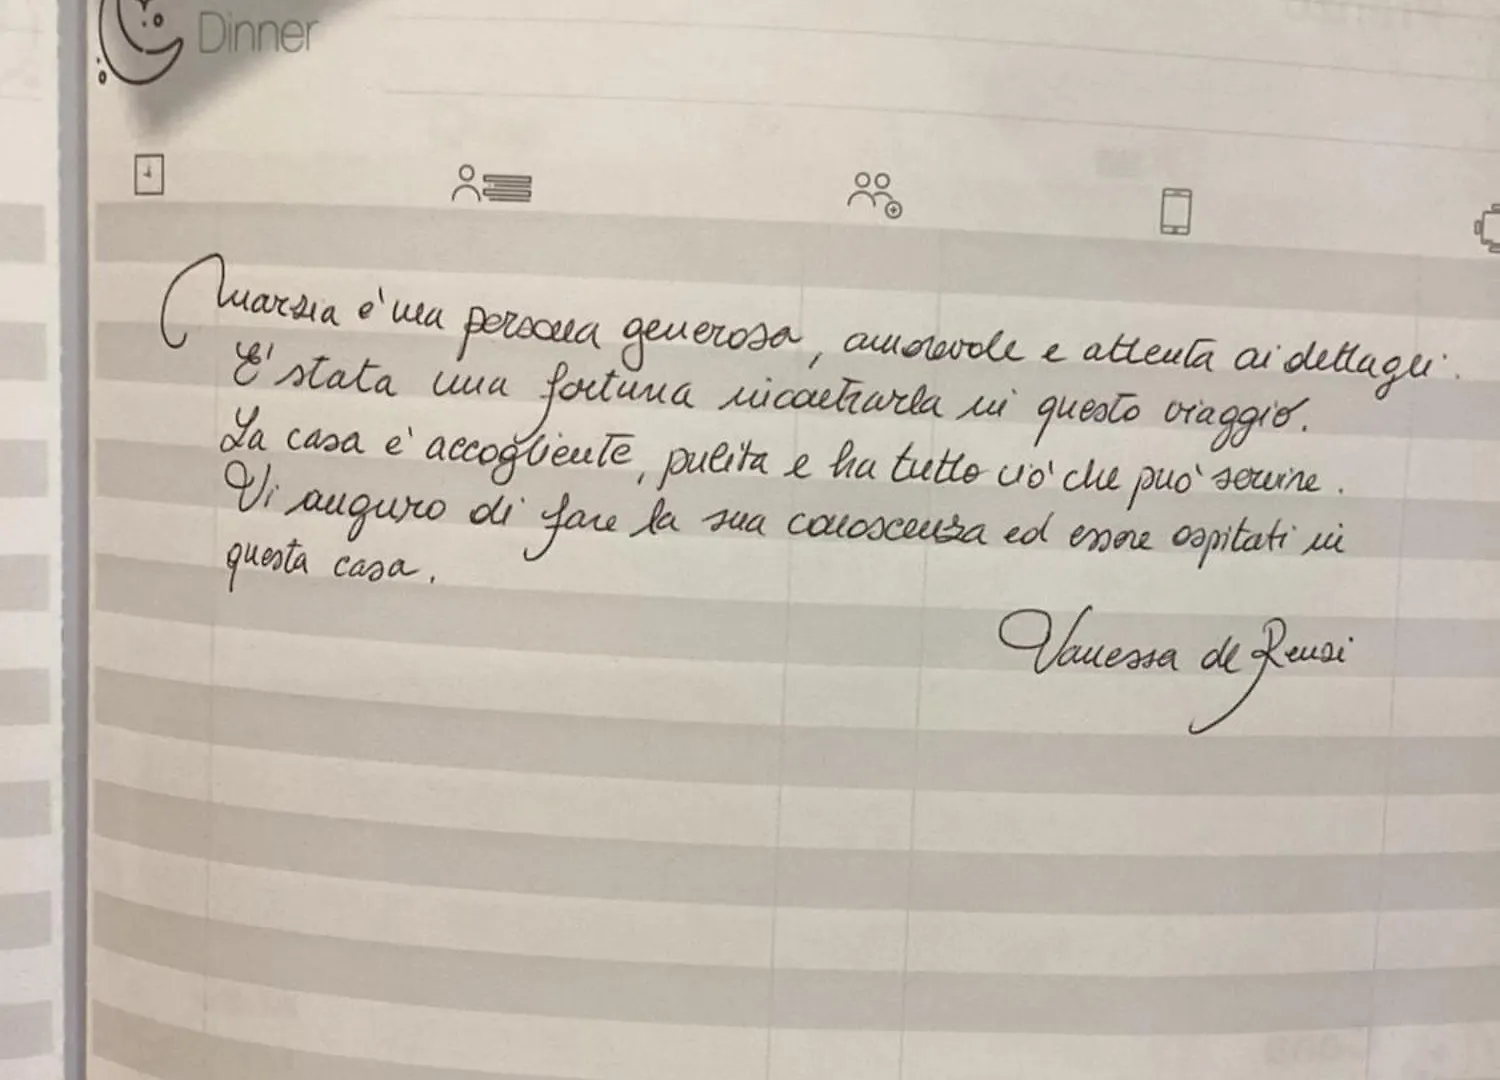 Dinner
Marzia è una persona generosa, amorevole e attenta ai dettagli.
E' stata una fortuna incontrarla in questo viaggio.
La casa è accogliente, pulita e ha tutto ciò che può servire.
Vi auguro di fare la sua conoscenza ed essere ospitati in
questa casa.
Vanessa de Rensi